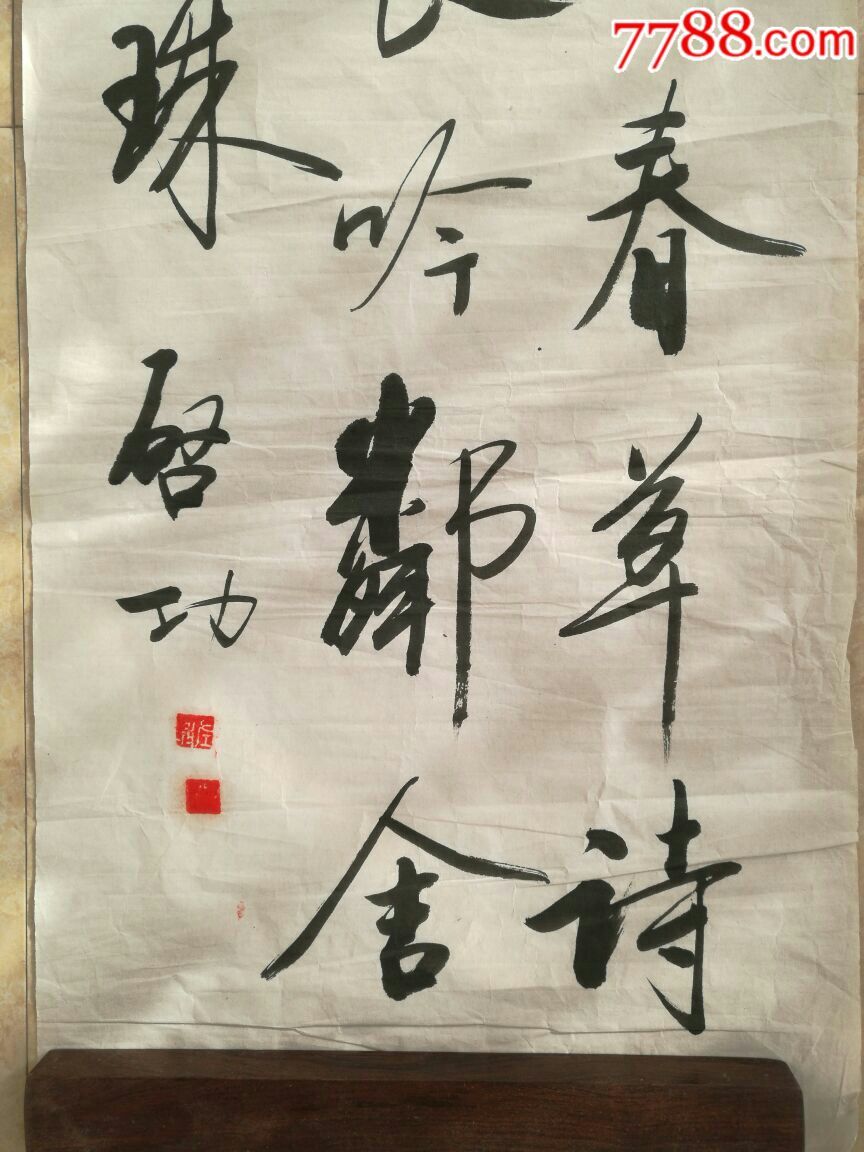 7788.com
春草诗
吟鄰舍
珠
启功